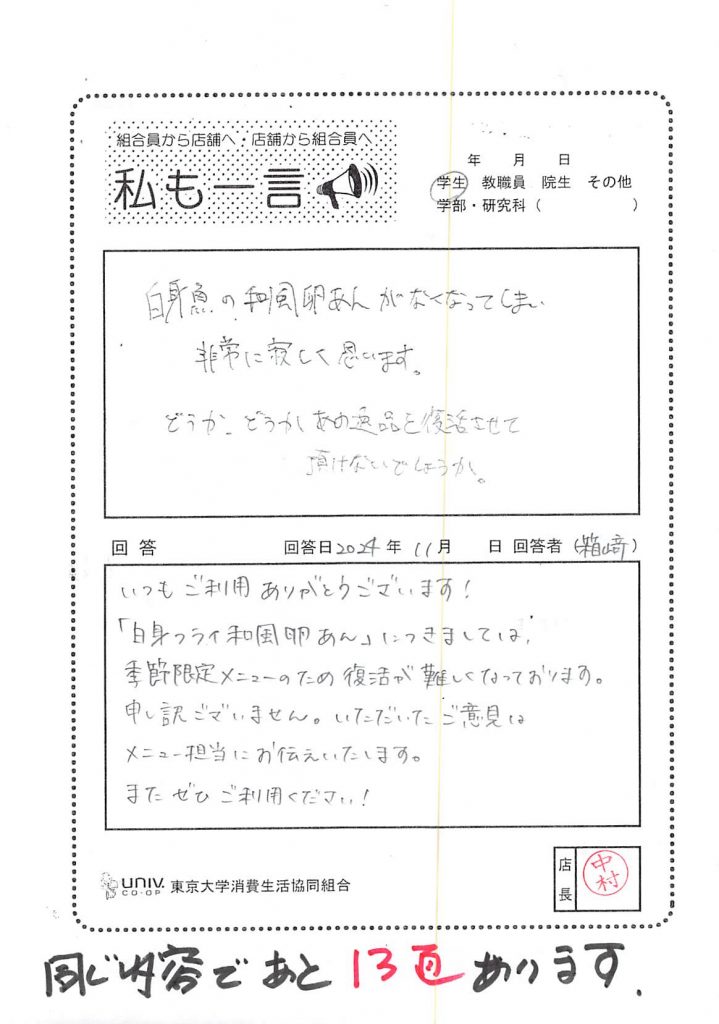 組合員から店舗へ・店舗から組合員へ
私も一言
年 月 日
学生 教職員 院生 その他
学部・研究科( )
白身魚の和風卵あんがなくなってしまい
非常に寂しく思います。
どうか、どうかあの逸品を復活させて
頂けないでしょうか。
回答 回答日2024年 11月 日 回答者(箱﨑)
いつもご利用ありがとうございます!
「白身フライ和風卵あん」につきましては、
季節限定メニューのため復活が難しくなっております。
申し訳ございません。いただいたご意見は
メニュー担当にお伝えいたします。
またぜひご利用ください!
店長
中村
UNIV. CO-OP 東京大学消費生活協同組合
同じ内容であと13通あります.